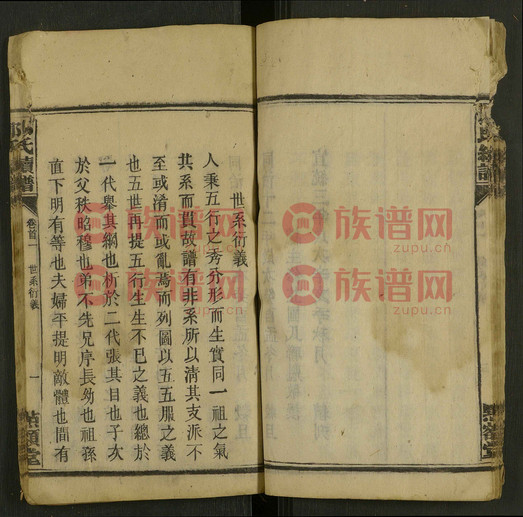 世系衍義
人秉五行之秀分形而生實同一祖之氣
其系而貫故譜有非系所以清其支派不
至或淆而或亂焉而列圖以五五服之義
也五世再提五行生生不已之義也總於
一代舉其綱也析於二代張其目也子次
於父秩昭穆也弟不先兄序長幼也祖孫
直下明有等也夫婦平提明敵體也間有
氏續譜
卷首一
世系衍義
一
堂
族谱网
zupu.cn
族谱网
zupu.cn
族谱网
zupu.cn
族谱网
zupu.cn